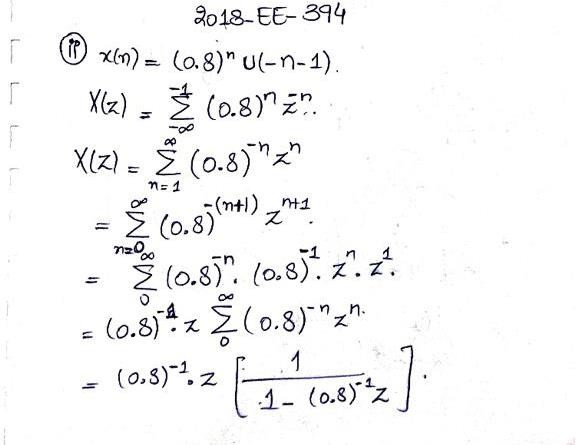 2018-EE-394
(ii) x(n) = (0.8)^n u(-n-1).
X(z) = Σ_{-∞}^{-1} (0.8)^n z^{-n}.
X(z) = Σ_{n=1}^{∞} (0.8)^{-n} z^n
= Σ_{n=0}^{∞} (0.8)^{-(n+1)} z^{n+1}.
= Σ_{0}^{∞} (0.8)^{-n}. (0.8)^{-1}. z^n. z^1.
= (0.8)^{-1}. z Σ_{0}^{∞} (0.8)^{-n} z^n.
= (0.8)^{-1}. z [ 1 / (1 - (0.8)^{-1} z) ].